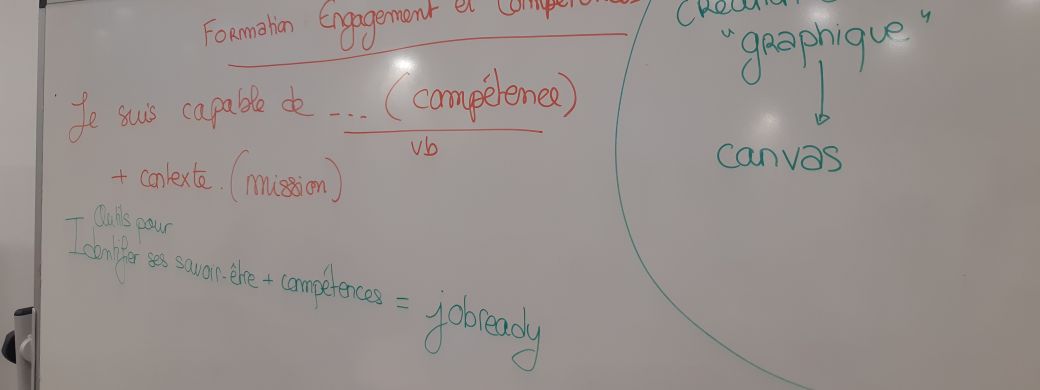 Formation Engagement et Compétences
Je suis capable de ... (compétence)
vb
+ contexte. (mission)
Outils pour
Identifier ses savoir-être + compétences = jobready
"graphique"
canvas